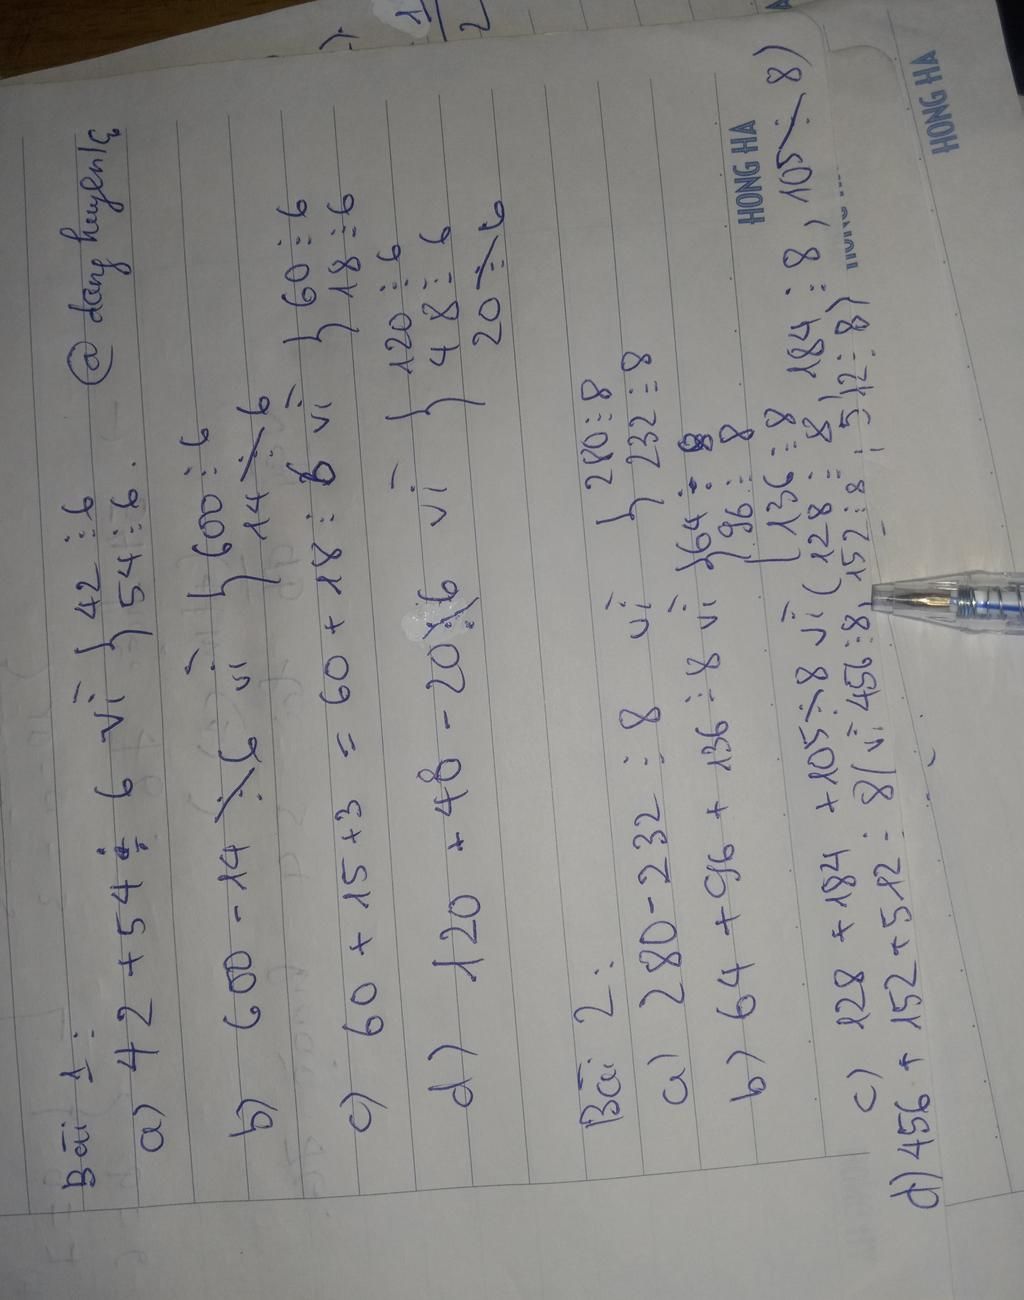 Bài 1:
@ dang huyen lê
a) 42 + 54 ⋮ 6 vì } 42 ⋮ 6
54 ⋮ 6.
b) 600 - 14 ⋮̸ 6 vì } 600 ⋮ 6
14 ⋮̸ 6
c) 60 + 15 + 3 = 60 + 18 ⋮ 6 vì } 60 ⋮ 6
18 ⋮ 6
d) 120 + 48 - 20 ⋮̸ 6 vì } 120 ⋮ 6
48 ⋮ 6
20 ⋮̸ 6
Bài 2:
a) 280 - 232 ⋮ 8 vì } 280 ⋮ 8
232 ⋮ 8
b) 64 + 96 + 136 ⋮ 8 vì } 64 ⋮ 8
96 ⋮ 8
136 ⋮ 8
c) 128 + 184 + 105 ⋮̸ 8 vì (128 ⋮ 8, 184 ⋮ 8, 105 ⋮̸ 8)
d) 456 + 152 + 512 ⋮ 8 (vì 456 ⋮ 8, 152 ⋮ 8; 512 ⋮ 8)
HONG HA
HONG HA
1
2